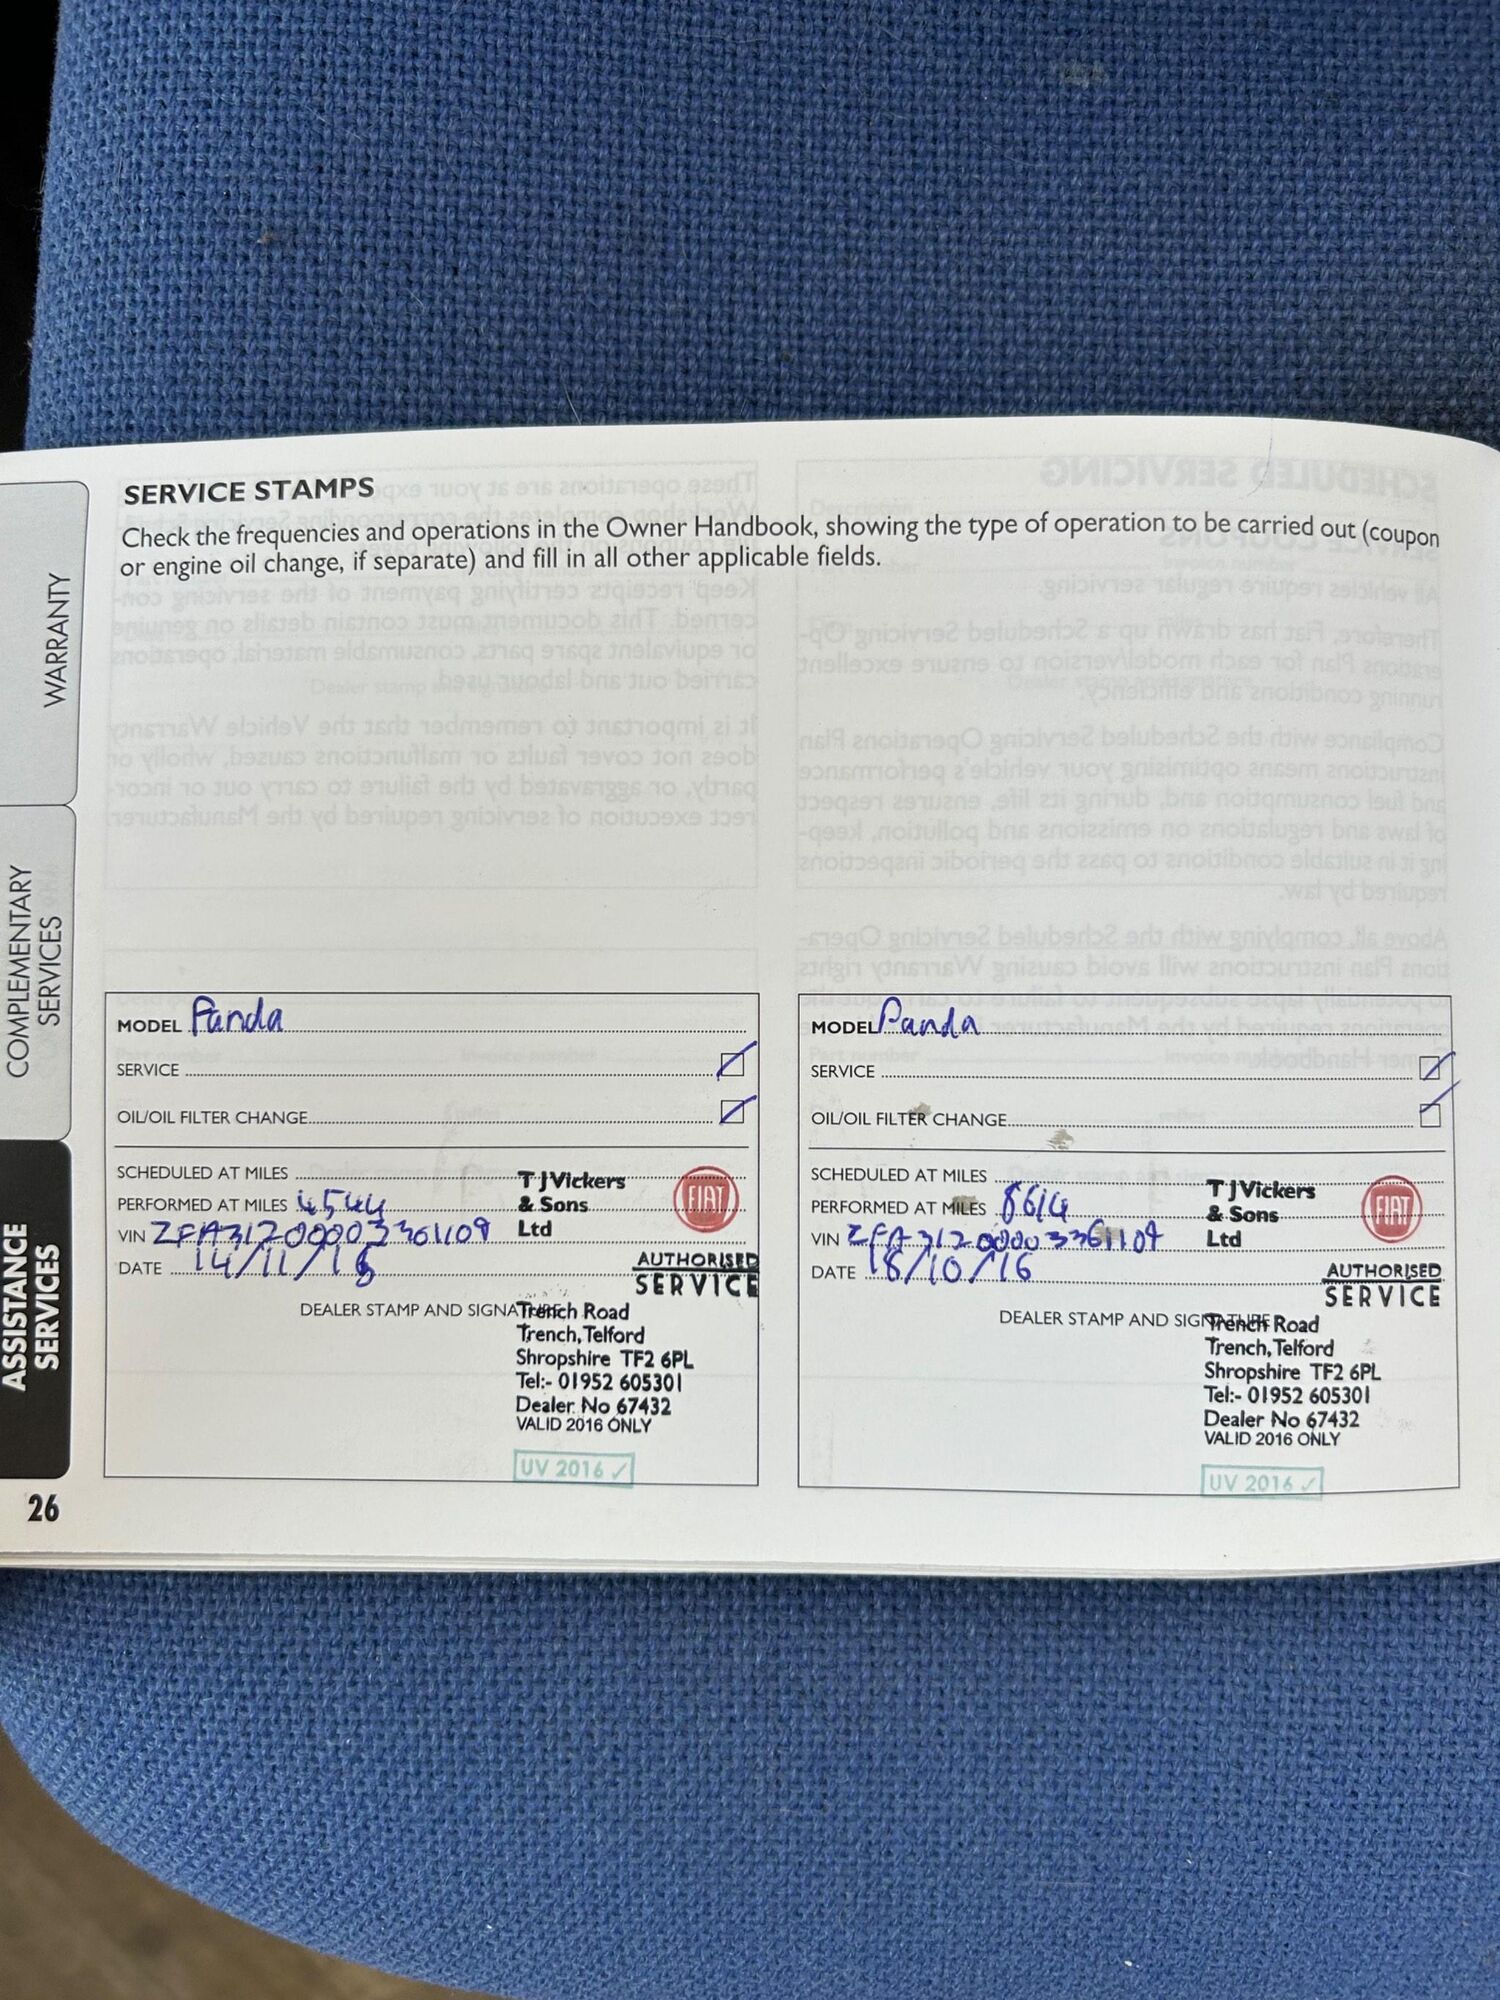 SERVICE STAMPS
Check the frequencies and operations in the Owner Handbook, showing the type of operation to be carried out (coupon
or engine oil change, if separate) and fill in all other applicable fields.
WARRANTY
COMPLEMENTARY
SERVICES
ASSISTANCE
SERVICES
26
MODEL Panda
SERVICE
OIL/OIL FILTER CHANGE
SCHEDULED AT MILES
PERFORMED AT MILES 4544
VIN ZFA31200003361109
DATE 14/11/15
DEALER STAMP AND SIGNATURE
T J Vickers
& Sons
Ltd
FIAT
AUTHORISED
SERVICE
Trench Road
Trench, Telford
Shropshire TF2 6PL
Tel:- 01952 605301
Dealer No 67432
VALID 2016 ONLY
UV 2016 ✓
MODEL Panda
SERVICE
OIL/OIL FILTER CHANGE
SCHEDULED AT MILES
PERFORMED AT MILES 8614
VIN ZFA31200003361109
DATE 18/10/16
DEALER STAMP AND SIGNATURE
T J Vickers
& Sons
Ltd
FIAT
AUTHORISED
SERVICE
Trench Road
Trench, Telford
Shropshire TF2 6PL
Tel:- 01952 605301
Dealer No 67432
VALID 2016 ONLY
UV 2016 ✓